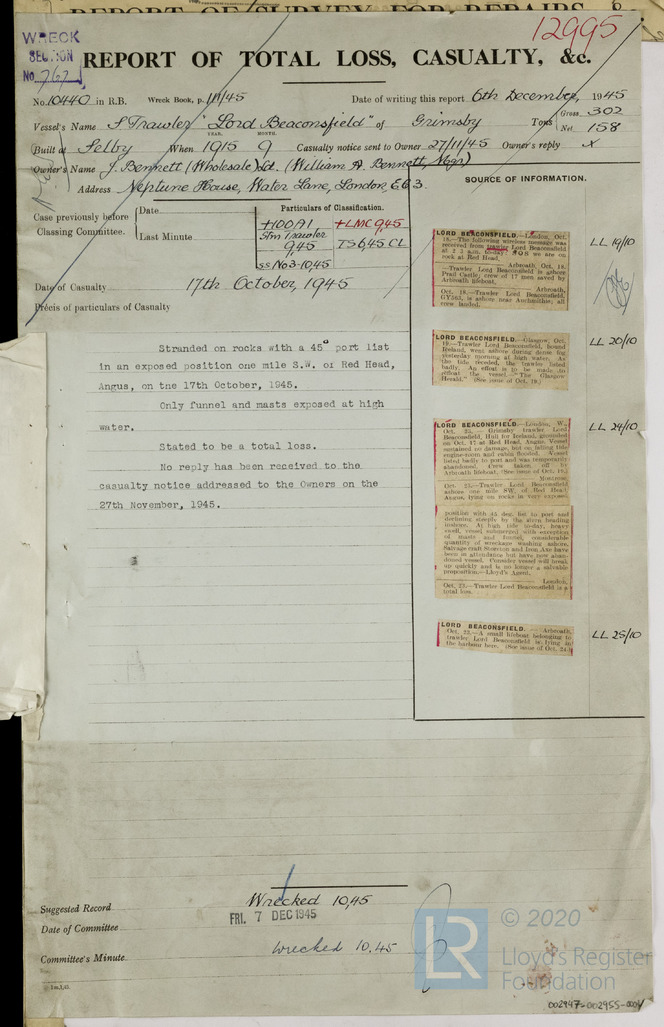 REPORT OF SURVEY FOR REPAIRS, &
12995
WRECK
SECTION
No. 767
REPORT OF TOTAL LOSS, CASUALTY, &c.
No. 10440 in R.B. Wreck Book, p. 111/45 Date of writing this report 6th December, 1945
Vessel's Name S Trawler "Lord Beaconsfield" of Grimsby Tons Gross 302
Net 158
YEAR. MONTH.
Built at Selby When 1915 9 Casualty notice sent to Owner 27/11/45 Owner's reply x
Owner's Name J. Bennett (Wholesale) Ld. (William A. Bennett, Mgr)
Address Neptune House, Water Lane, London, E.C.3.
SOURCE OF INFORMATION.
Case previously before Classing Committee.
Date
Last Minute
Particulars of Classification.
+100A1 +LMC 9,45
Stm Trawler
9,45 TS 6,45 CL
ss No3-10,45
Date of Casualty 17th October, 1945
Précis of particulars of Casualty
Stranded on rocks with a 45° port list
in an exposed position one mile S.W. of Red Head,
Angus, on the 17th October, 1945.
Only funnel and masts exposed at high
water.
Stated to be a total loss.
No reply has been received to the
casualty notice addressed to the Owners on the
27th November, 1945.
LORD BEACONSFIELD.—London, Oct.
18.—The following wireless message was
received from trawler Lord Beaconsfield
at 2 2 a.m. to-day: SOS we are on
rock at Red Head.
Arbroath, Oct. 18.
—Trawler Lord Beaconsfield is ashore
Prail Castle; crew of 17 men saved by
Arbroath lifeboat.
Arbroath,
Oct. 18.—Trawler Lord Beaconsfield,
GY563, is ashore near Auchmithie; all
crew landed.
LL 19/10
LORD BEACONSFIELD.—Glasgow, Oct.
19.—Trawler Lord Beaconsfield, bound
Iceland, went ashore during dense fog
yesterday morning at high water. As
the tide receded, the trawler listed
badly. An effort is to be made to
refloat the vessel.—"The Glasgow
Herald." (See issue of Oct. 19.)
LL 20/10
LORD BEACONSFIELD.—London,
Oct. 23.—Grimsby trawler Lord
Beaconsfield, Hull for Iceland, grounded
on Oct. 17 at Red Head, Angus. Vessel
sustained no damage, but on falling tide
engine-room and cabin flooded. Vessel
listed badly to port and was temporarily
abandoned. Crew taken off by
Arbroath lifeboat. (See issue of Oct.
Montrose,
Oct. 23.—Trawler Lord Beaconsfield
ashore one mile SW. of Red Head,
Angus, lying on rocks in very exposed
position with 45 deg. list to port and
declining steeply by the stern heading
inshore. At high tide to-day, heavy
swell, vessel submerged with exception
of masts and funnel, considerable
quantity of wreckage washing ashore.
Salvage craft
been in attendance but have now aban-
doned vessel. Consider vessel will break
up quickly and is no longer a salvable
proposition.—Lloyd's Agent.
London,
Oct. 23.—Trawler Lord Beaconsfield is a
total loss.
LL 24/10
LORD BEACONSFIELD.—Arbroath,
Oct. 22.—A small lifeboat belonging to
trawler Lord Beaconsfield is lying in
the harbour here. (See issue of Oct. 24.)
LL 25/10
Suggested Record Wrecked 10,45
Date of Committee FRI. 7 DEC 1945
Committee's Minute Wrecked 10,45
LR
© 2020
Lloyd's Register
Foundation
002947-002955-0001